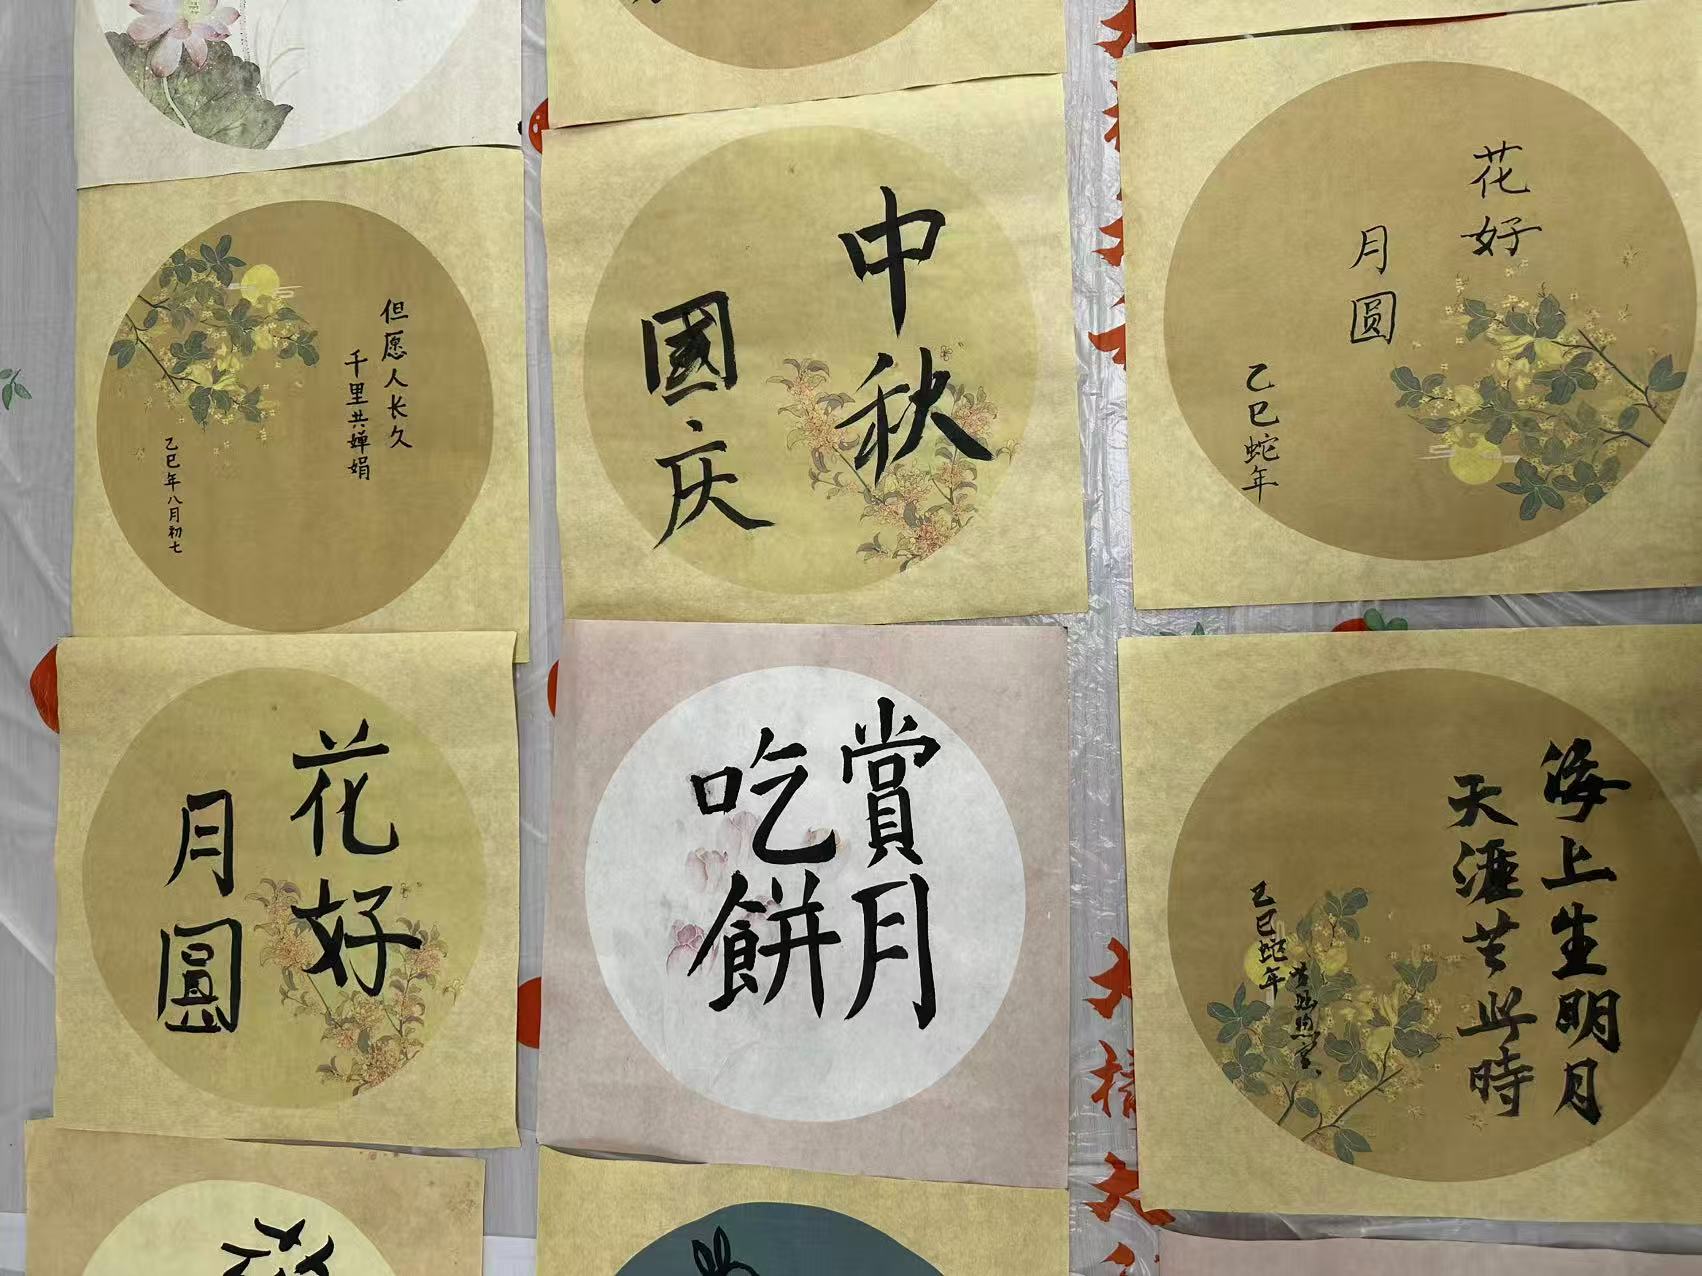 但愿人长久
千里共婵娟
乙巳年八月初七
中秋
國庆
花好
月圆
乙巳蛇年
花好
月圓
賞月
吃餅
海上生明月
天涯共此時
乙巳蛇年